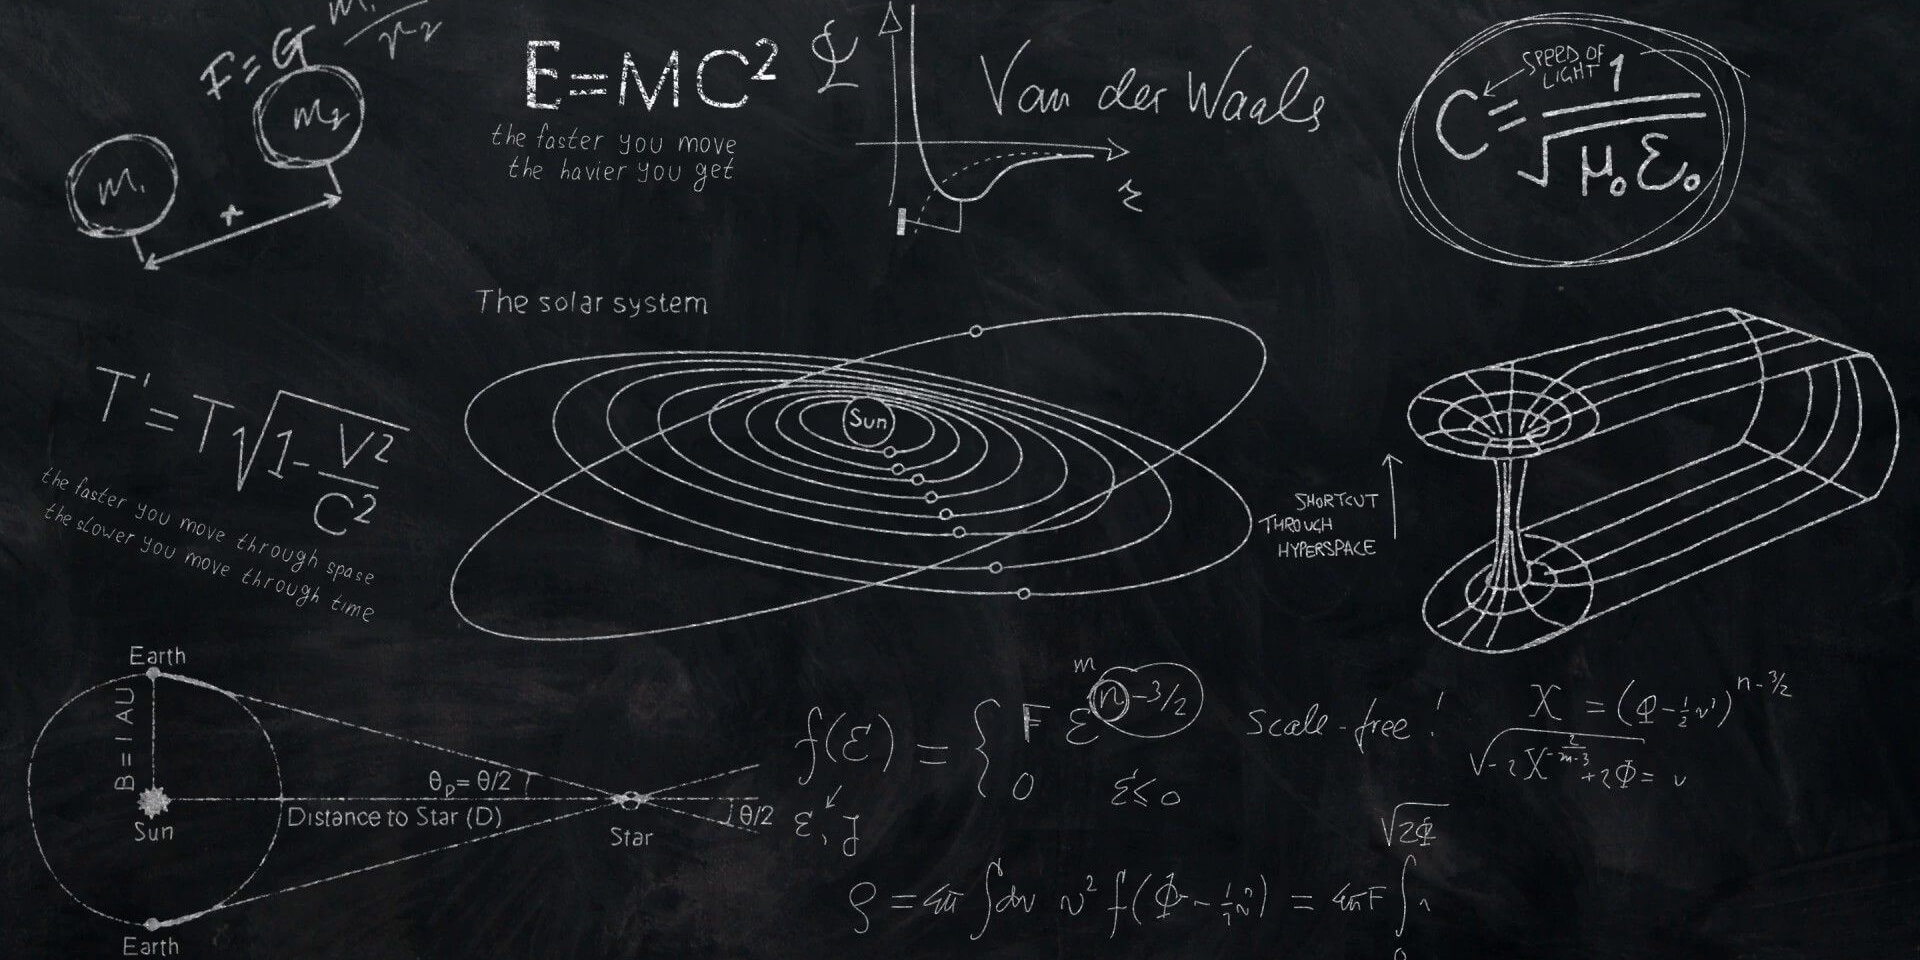 F=G m₁/r2
m₂
m₁
E=MC²
the faster you move
the havier you get
Van der Waals
SPEED OF
LIGHT
C= 1/√μ₀ε₀
The solar system
Sun
T'=T√1-V²/C²
the faster you move through spase
the slower you move through time
SHORTCUT
THROUGH
HYPERSPACE
Earth
B=1AU
Sun
θp=θ/2
Distance to Star (D)
Star
θ/2
Earth
m
f(ε) = { F ε n-3/2
0 ε≤0
ε, J
Scale-free!
X = (Φ-½v²)n-3/2
√2Φ
ρ = 4π ∫dv v² f(Φ-½v²) = 4πF ∫
0